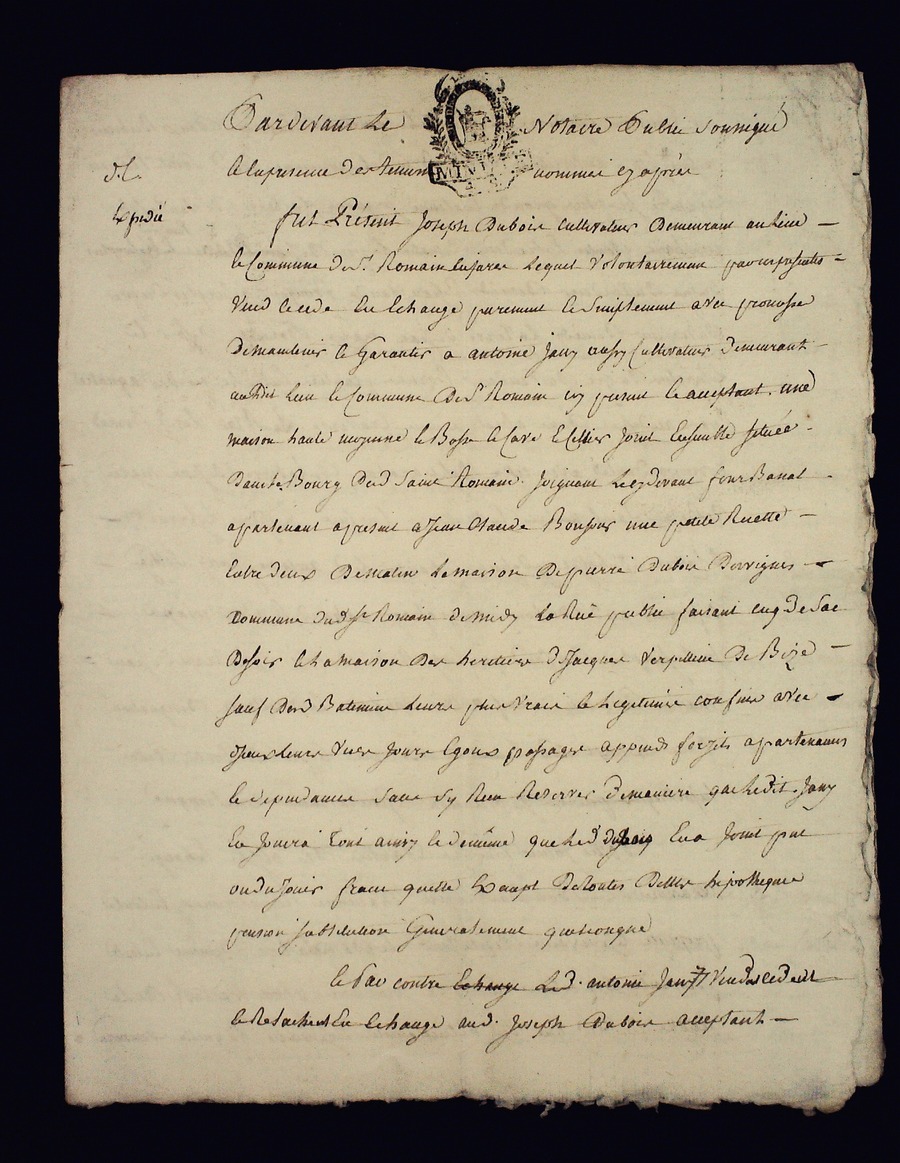 Pardevant Le Notaire Public soussigné
MINI
a la presence des temoins nommés cy après
Expedié
fut Présent Joseph Dubois Cultivateur Demeurant au Lieu
et Commune de St Romain Lequel Volontairement par ces presentes
Vend cede En Echange purement et Simplement avec promesse
De maintenir et Garantir a antoine Jany aussy Cultivateur Demeurant
audit Lieu et Commune De St Romain icy presant et acceptant une
maison haute moyenne et Basse et Cave et Cellier Joint Ensemble située
Dans Le Bourg Dud Saint Romain Joignant Le cy devant four Banal
apartenant apresent a Jean Claude une petite Ruette
Entre Deux De matin La maison De pierre Dubois
Commune dud St Romain de midy La Rue public faisant cuq de Sac
De soir et La maison Des heritiers D Jacques De Bize
sauf Desd Batiment Leurs plus Vraie et Legitimes confins avec
Leurs Vues Jours Egoux passages appends apartenances
et dependances sans sy Rien Reserver de maniere que Ledit Jany
En Jouira Tout ainsy et de même que Led En a Joint put
ou du Jouir franc quitte Exempt De toutes Dettes hipotheque
pension substitution Generalement quelconque
et Par contre Echange Led. antoine Jany Vend cede
et Relache En Echange aud. Joseph Dubois acceptant